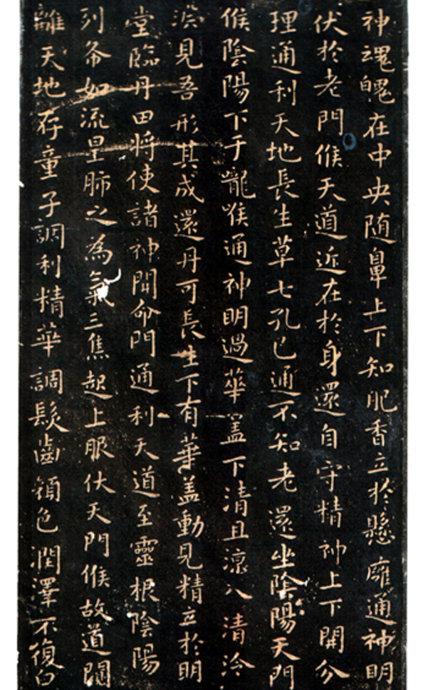 神魂魄在中央随鼻上下知肥香立於懸廱通神明
伏於老門候天道近在於身還自守精神上下開分
理通利天地長生草七孔已通不知老還坐陰陽天門
候陰陽下于嚨喉通神明過華蓋下清且涼入清泠
淵見吾形其成還丹可長生下有華蓋動見精立於明
堂臨丹田將使諸神開命門通利天道至靈根陰陽
列布如流星肺之為氣三焦起上服伏天門候故道闚
離天地存童子調利精華調髮齒顏色潤澤不復白